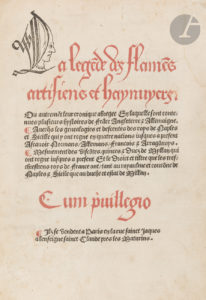 La legēde des flamēs
artisiens et haynuyers
Ou autremēt leur cronique abregee En laquelle sont con
tenues plusieurs hystoires de France Angleterre & Allemaigne.
¶ Auecques les genealogies et descentes des roys de Naples
et Sicille qui y ont regne en quatre nations iusques a present
Assauoir Normans / Allemans / Francois / & Arragonoys.
¶ des vicōtes / & Ducz de Myllan qui
ont regne iusques a present Et le Droict et tiltre que les tres
crestiens roys de france ont / tant au royaulme et couronne de
Naples & Sicille que au duche et estat de Myllan.
Cum priuilegio
¶ Ilz se vendent a Paris en la rue sainct Jaques
a lenseigne sainct Claude pres les Maturins.